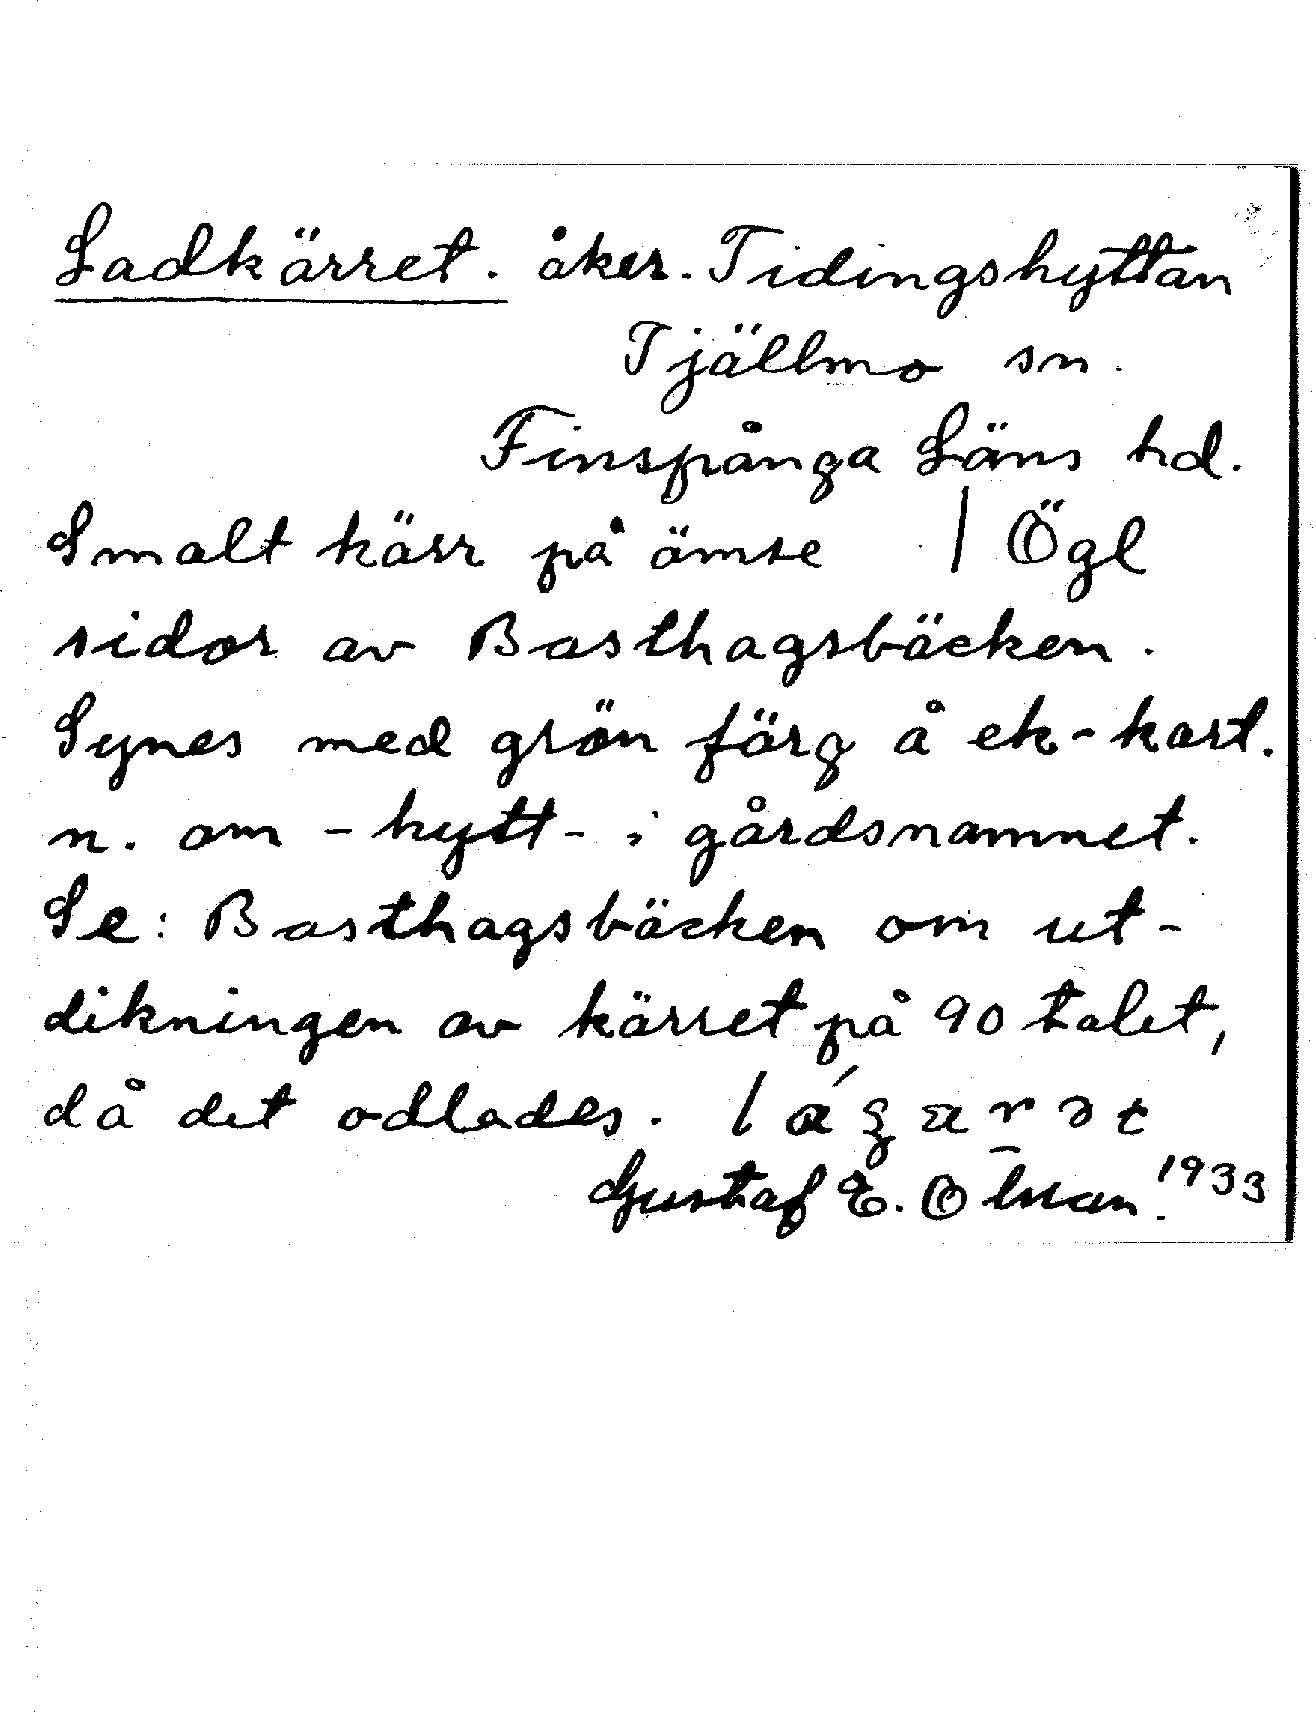 Ladkärret. åker. Tidingshyttan
Tjällmo sn.
Finspånga Läns hd.
Smalt kärr på ömse | Ögl
sidor av Basthagsbäcken.
Synes med grön färg å ek-kart.
n. om -hytt- i gårdsnamnet.
Se: Basthagsbäcken om ut-
dikningen av kärret på 90 talet,
då det odlades.
Gustaf E. 1933